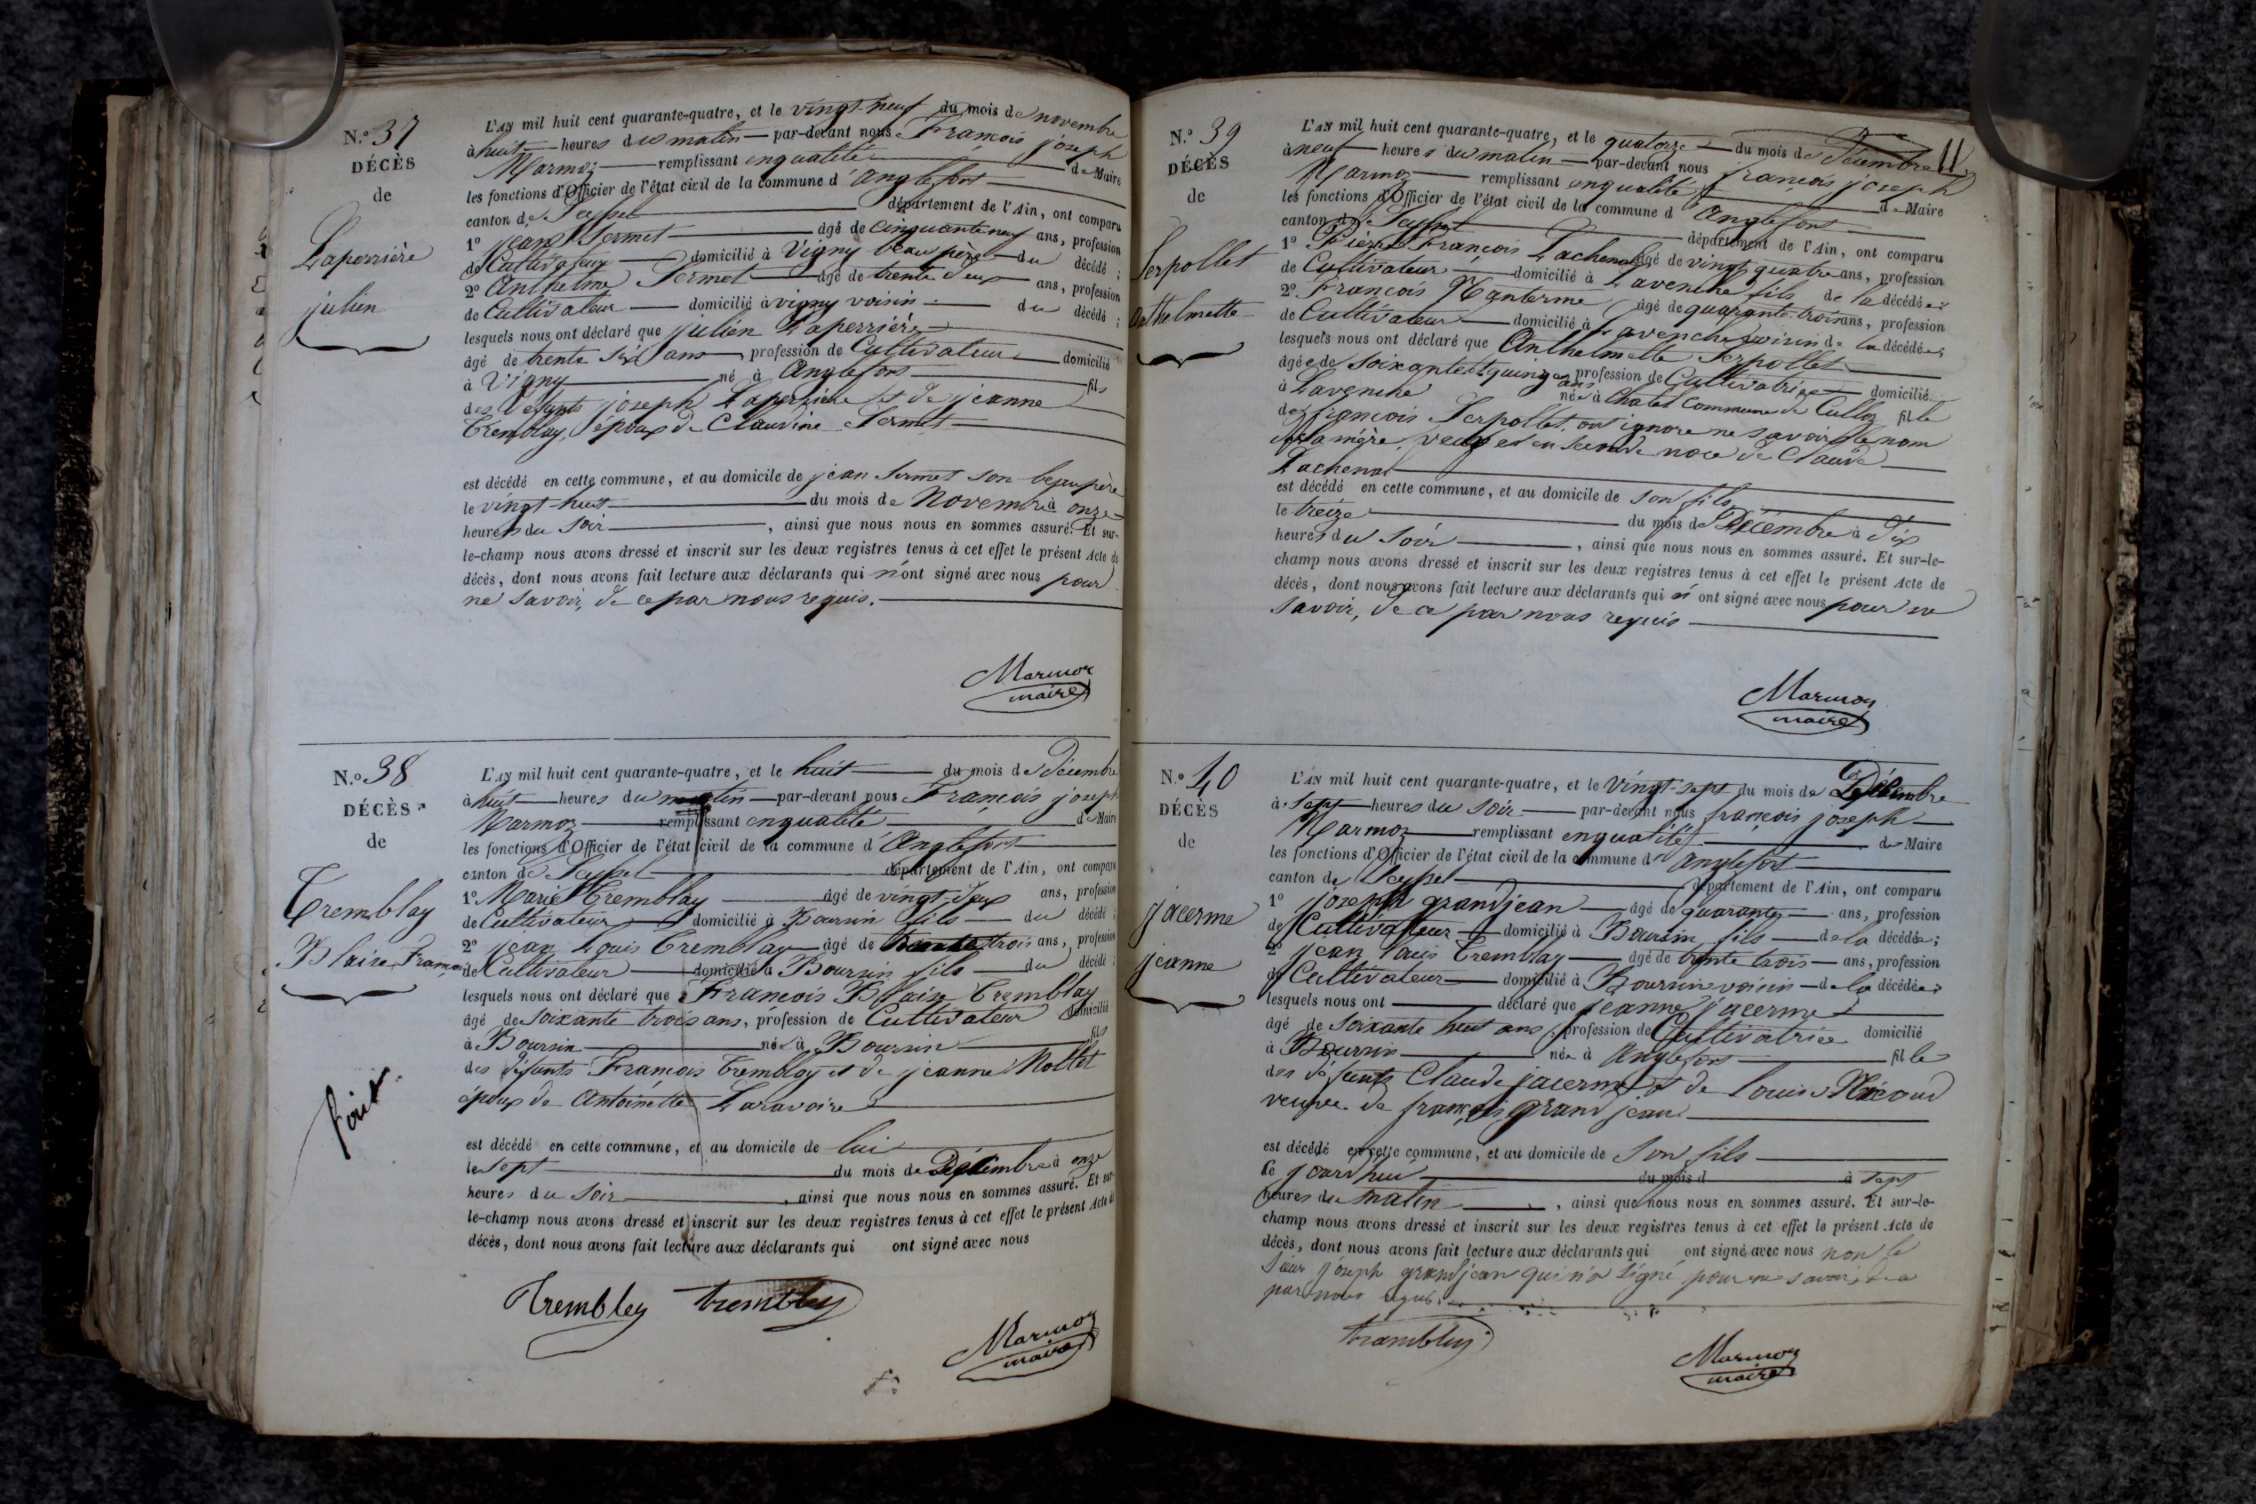 N.º 37
DÉCÈS
de
Laperrière
julien
L'AN mil huit cent quarante-quatre, et le vingt-neuf du mois de novembre
à huit heures du matin par-devant nous François joseph
Marmoz remplissant en qualité de Maire
les fonctions d'Officier de l'état civil de la commune d'Anglefort
canton de Seyssel département de l'Ain, ont comparu
1º jean Sermet âgé de cinquante neuf ans, profession
de Cultivateur domicilié à Vigny beau père du décédé ;
2º Anthelme Sermet âgé de trente deux ans, profession
de Cultivateur domicilié à vigny voisin du décédé ;
lesquels nous ont déclaré que julien Laperrière
âgé de trente six ans profession de Cultivateur domicilié
à Vigny né à Anglefort fils
des défunts joseph Laperrière et de jeanne
Tremblay, époux de Claudine Sermet
est décédé en cette commune, et au domicile de jean Sermet son beau père
le vingt huit du mois de Novembre à onze
heures du soir , ainsi que nous nous en sommes assuré. Et sur-
le-champ nous avons dressé et inscrit sur les deux registres tenus à cet effet le présent Acte de
décès, dont nous avons fait lecture aux déclarants qui n'ont signé avec nous pour
ne savoir, de ce par nous requis.
Marmoz
maire
N.º 38
DÉCÈS
de
Tremblay
Blaise François
fait
L'AN mil huit cent quarante-quatre, et le huit du mois de Décembre
à huit heures du matin par-devant nous François joseph
Marmoz remplissant en qualité de Maire
les fonctions d'Officier de l'état civil de la commune d'Anglefort
canton de Seyssel département de l'Ain, ont comparu
1º Marie Tremblay âgé de vingt deux ans, profession
de Cultivateur domicilié à Boursin fils du décédé ;
2º jean Louis Tremblay âgé de trente trois ans, profession
de Cultivateur domicilié à Boursin fils du décédé ;
lesquels nous ont déclaré que François Blaise Tremblay
âgé de soixante trois ans, profession de Cultivateur domicilié
à Boursin né à Boursin fils
des défunts François Tremblay et de jeanne Mollet
époux de Antoinette Laravoire
est décédé en cette commune, et au domicile de lui
le sept du mois de Décembre à onze
heures du soir , ainsi que nous nous en sommes assuré. Et sur-
le-champ nous avons dressé et inscrit sur les deux registres tenus à cet effet le présent Acte de
décès, dont nous avons fait lecture aux déclarants qui ont signé avec nous
Trembley trembley
Marmoz
maire
11
N.º 39
DÉCÈS
de
Serpollet
Anthelmette
L'AN mil huit cent quarante-quatre, et le quatorze du mois de Décembre
à neuf heures du matin par-devant nous françois joseph
Marmoz remplissant en qualité de Maire
les fonctions d'Officier de l'état civil de la commune d'Anglefort
canton de Seyssel département de l'Ain, ont comparu
1º Pierre François Lachenal âgé de vingt quatre ans, profession
de Cultivateur domicilié à Lavenche fils de la décédée ;
2º François Nanterme âgé de quarante trois ans, profession
de Cultivateur domicilié à Lavenche voisin de la décédée ;
lesquels nous ont déclaré que Anthelmette Serpollet
âgée de soixante et quinze ans profession de Cultivatrice domicilié
à Lavenche née à Chatel Commune de Culloz fille
de françois Serpollet, on ignore ne savoir le nom
de sa mère, veuve en seconde noce de Claude
Lachenal
est décédé en cette commune, et au domicile de son fils
le treize du mois de Décembre à dix
heures du soir , ainsi que nous nous en sommes assuré. Et sur-le-
champ nous avons dressé et inscrit sur les deux registres tenus à cet effet le présent Acte de
décès, dont nous avons fait lecture aux déclarants qui n'ont signé avec nous pour ne
savoir, de ce par nous requis
Marmoz
maire
N.º 40
DÉCÈS
de
jacerme
jeanne
L'AN mil huit cent quarante-quatre, et le vingt-sept du mois de Décembre
à sept heures du soir par-devant nous françois joseph
Marmoz remplissant en qualité de Maire
les fonctions d'Officier de l'état civil de la commune d'Anglefort
canton de Seyssel département de l'Ain, ont comparu
1º joseph grandjean âgé de quarante ans, profession
de Cultivateur domicilié à Boursin fils de la décédée ;
2º jean Louis Tremblay âgé de trente trois ans, profession
de Cultivateur domicilié à Boursin voisin de la décédée ;
lesquels nous ont déclaré que jeanne jacerme
âgé de soixante huit ans profession de Cultivatrice domicilié
à Boursin née à Anglefort fille
des défunts Claude jacerme et de Louise
veuve de françois grandjean
est décédé en cette commune, et au domicile de son fils
le jourd'hui du mois d à sept
heures du matin , ainsi que nous nous en sommes assuré. Et sur-le-
champ nous avons dressé et inscrit sur les deux registres tenus à cet effet le présent Acte de
décès, dont nous avons fait lecture aux déclarants qui ont signé avec nous non le
sieur joseph grandjean qui n'a signé pour ne savoir, de ce
par nous requis.
trembley
Marmoz
maire